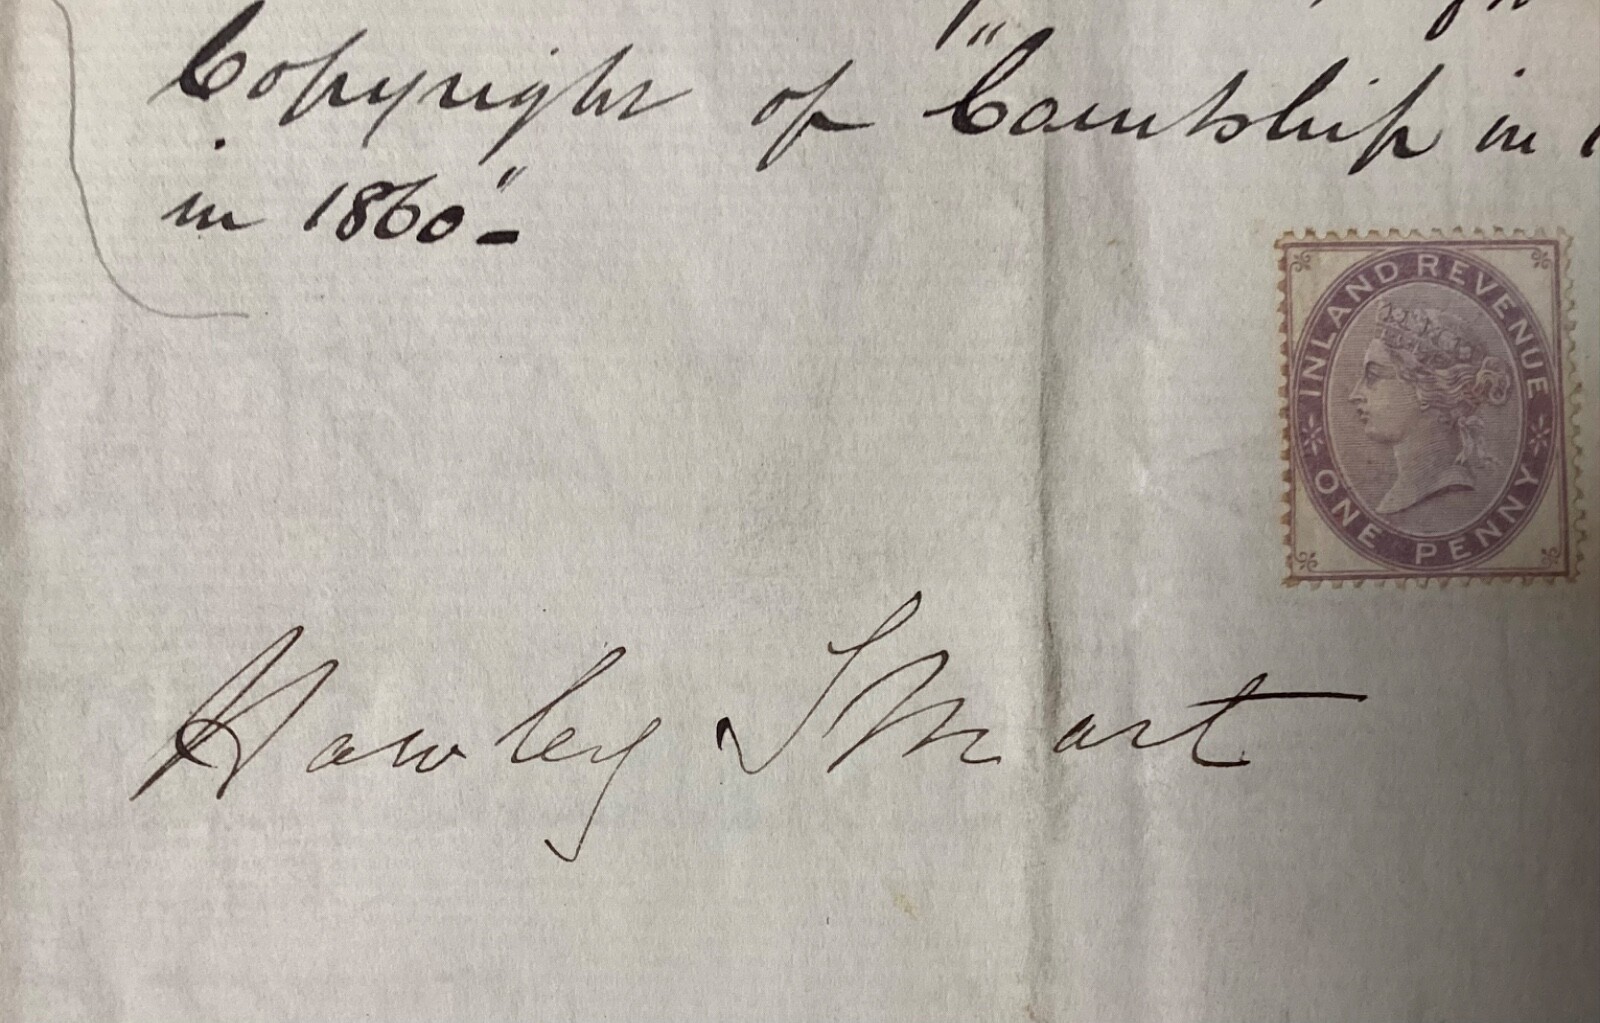 Copyright of "Courtship in
in 1860" -
INLAND REVENUE
ONE PENNY
Hawley Smart